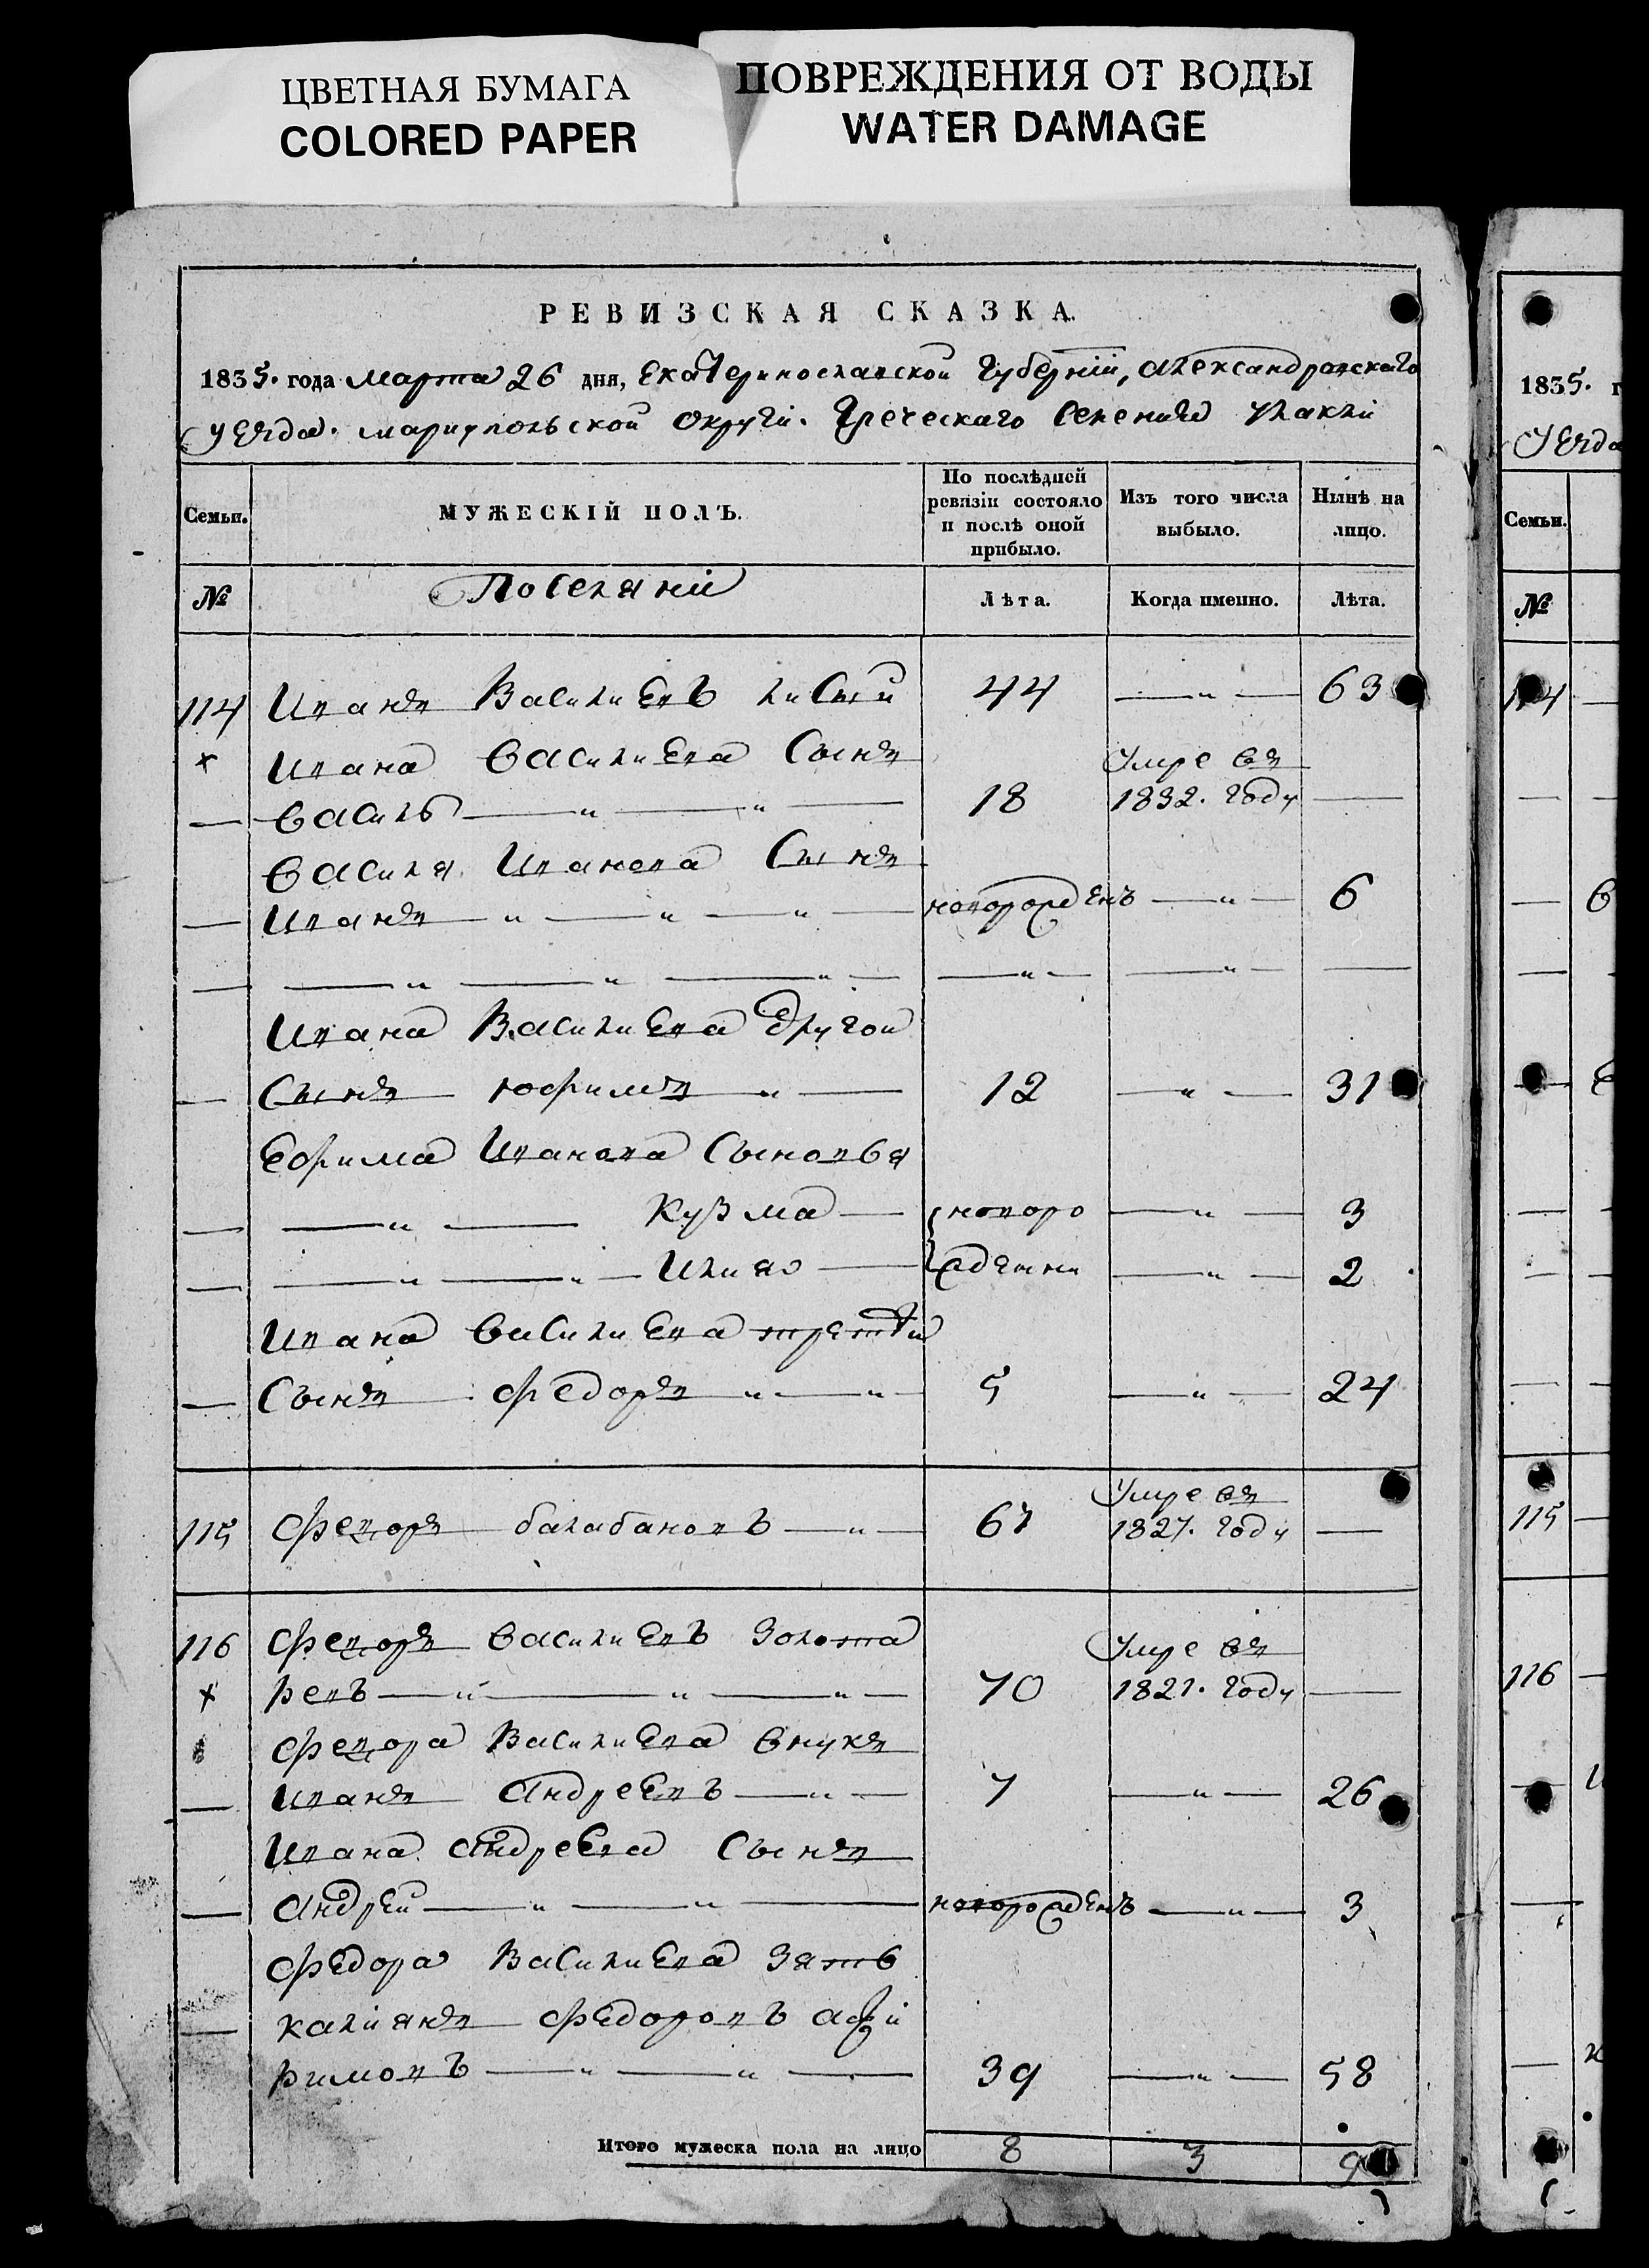 ЦВЕТНАЯ БУМАГА
COLORED PAPER
ПОВРЕЖДЕНИЯ ОТ ВОДЫ
WATER DAMAGE
РЕВИЗСКАЯ СКАЗКА.
1835. года марта 26 дня, Екатеринославской Губернїи, александровскаго
уезда. мариупольской округи. Греческаго Селения Улаклы
Семьи. МУЖЕСКІЙ ПОЛЪ. По послѣдней ревизіи состояло и послѣ оной прибыло. Изъ того числа выбыло. Нынѣ на лицо.
№ Поселяне Лѣта. Когда именно. Лѣта.
114 Иванъ Василиевъ лисый 44 — " — 63
× Ивана василиева Сынъ Умре въ
— василь — " — " — 18 1832. году —
василя Иванова Сынъ
— Иванъ — " — " — " — новорожденъ — " — 6
— — " — " — " — — " — — " — —
Ивана Василиева другой
— Сынъ юфимъ " — 12 — " — 31
Ефима Иванова Сыновья
— — " — Кузма — новоро — " — 3
— — " — " — Илия — жденни — " — 2
Ивана василиева третий
— Сынъ федоръ " — " — 5 — " — 24
115 Феѡдоръ балабановъ — " — 67 Умре въ 1827. году —
116 Феѡдоръ василиевъ золота Умре въ
× ревъ — " — " — " — 70 1821. году —
Феѡдора Василиева внукъ
— Иванъ Андреевъ — " — 7 — " — 26
Ивана Андреева Сынъ
— Андрей — " — " — новорожденъ — " — 3
Федора Василиева зять
— калиянъ федоровъ
римовъ — " — " — 39 — " — 58
Итого мужеска пола на лицо 8 3 9
1835. г
Уезда
Семьи.
№
114
115
116